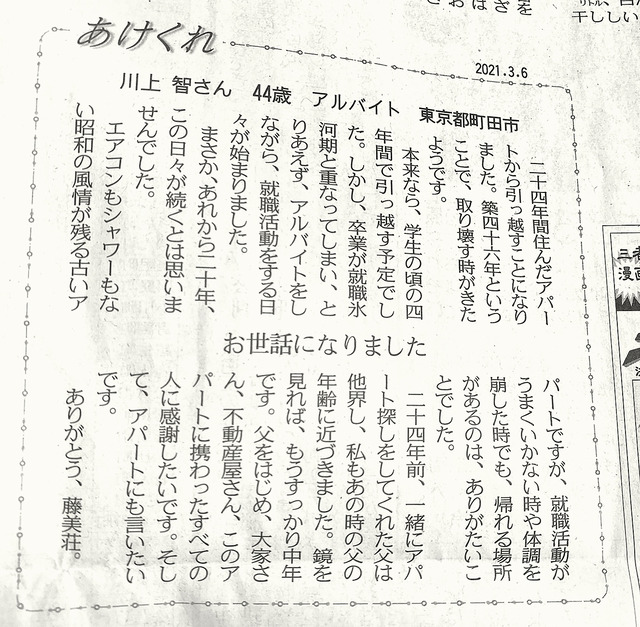 あけくれ
2021.3.6
川上 智さん 44歳 アルバイト 東京都町田市
二十四年間住んだアパー
トから引っ越すことになり
ました。築四十六年という
ことで、取り壊す時がきた
ようです。
本来なら、学生の頃の四
年間で引っ越す予定でし
た。しかし、卒業が就職氷
河期と重なってしまい、と
りあえず、アルバイトをし
ながら、就職活動をする日
々が始まりました。
まさか、あれから二十年、
この日々が続くとは思いま
せんでした。
エアコンもシャワーもな
い昭和の風情が残る古いア
お世話になりました
パートですが、就職活動が
うまくいかない時や体調を
崩した時でも、帰れる場所
があるのは、ありがたいこ
とでした。
二十四年前、一緒にアパ
ート探しをしてくれた父は
他界し、私もあの時の父の
年齢に近づきました。鏡を
見れば、もうすっかり中年
です。父をはじめ、大家さ
ん、不動産屋さん、このア
パートに携わったすべての
人に感謝したいです。そし
て、アパートにも言いたい
です。
ありがとう、藤美荘。
干ししい
漫画